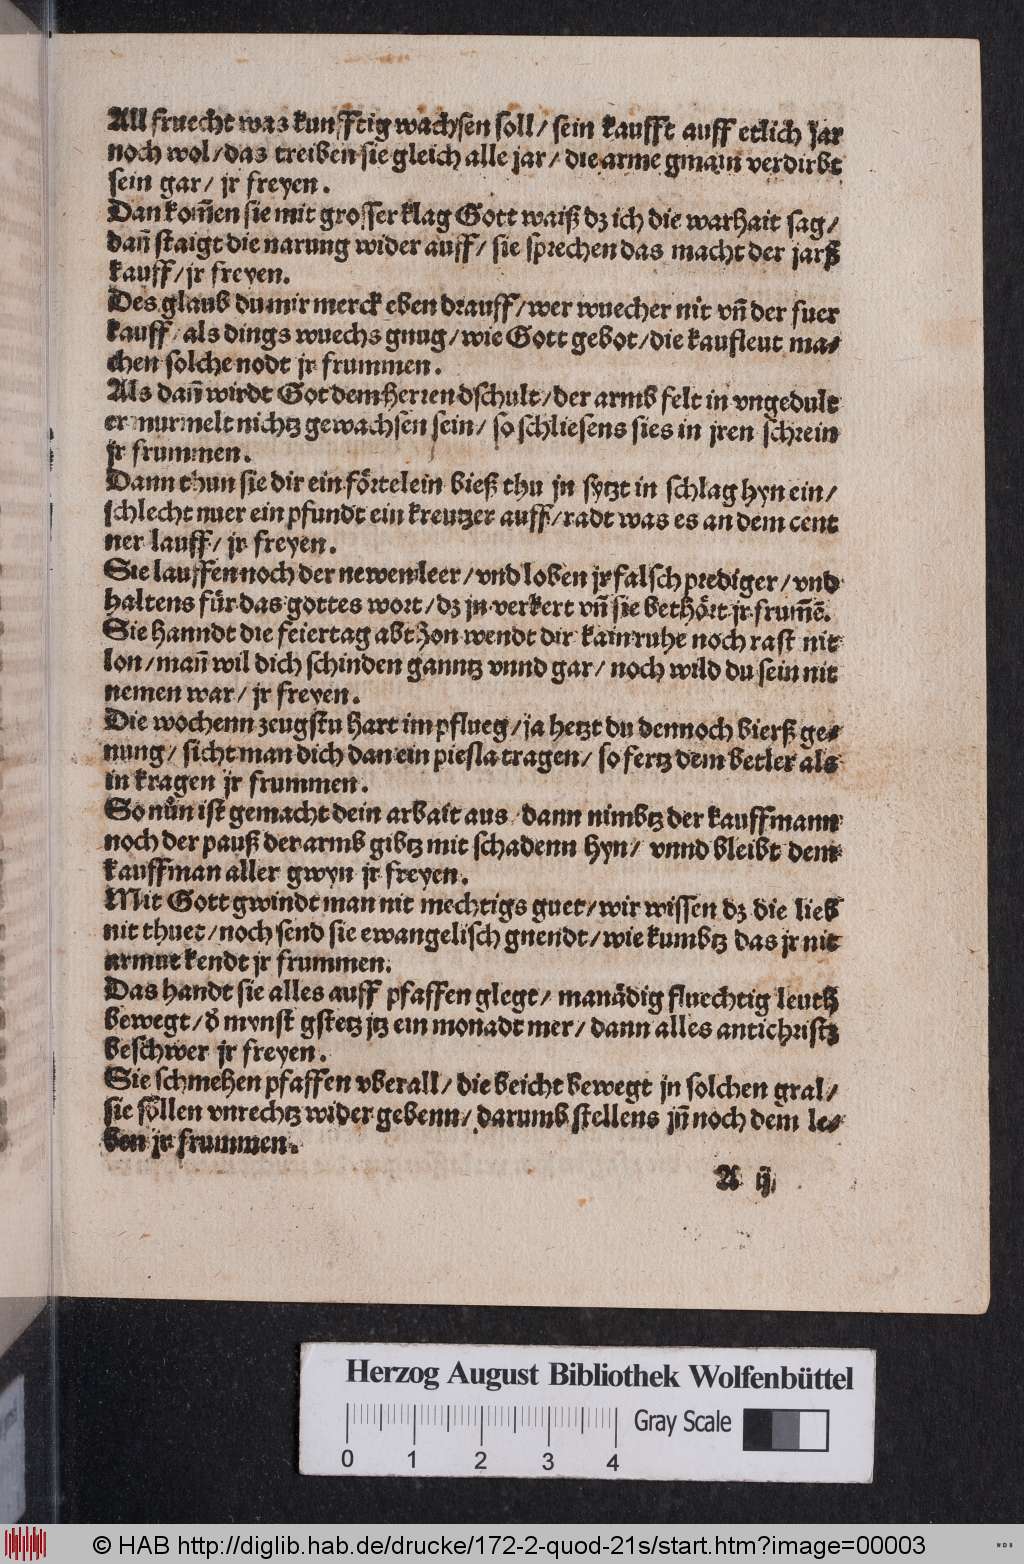 All fruecht was kunfftig wachsen soll/ sein kaufft auff etlich jar
noch wol/das treiben sie gleich alle jar/ die arme gmain verdirbt
sein gar/ jr freyen.
Dan kom̄en sie mit grosser klag Gott waiß dz ich die warhait sag/
dañ staigt die narung wider auff/ sie sprechen das macht der jarß
kauff/jr freyen.
Des glaub du mir merck eben drauff/wer wuecher nit vñ der fuer
kauff/als dings wuechs gnug/wie Gott gebot/die kaufleut ma⸗
chen solche nodt jr frummen.
Als dañ wirdt Got dem herren dschult/der armb felt in vngedult
er murmelt nichtz gewachsen sein/ so schliesens sies in jren schrein
jr frummen.
Dann thun sie dir ein förtelein bieß thu jn sytzt in schlag hyn ein/
schlecht nuer ein pfundt ein kreutzer auff/radt was es an dem cent
ner lauff/ jr freyen.
Sie lauffen noch der newen leer/vnd loben jr falsch prediger/vnd
haltens für das gottes wort/dz jn verkert vñ sie bethört jr frum̄ē.
Sie hanndt die feiertag abthon wendt dir kain ruhe noch rast nit
lon/mañ wil dich schinden ganntz vnnd gar/ noch wild du sein nit
nemen war/ jr freyen.
Die wochenn zeugstu hart im pflueg/ja hetzt du dennoch bierß ge⸗
nung/ sicht man dich dan ein piesla tragen/ so fertz dem betler als
in kragen jr frummen.
So nůn ist gemacht dein arbait aus/dann nimbtz der kauffmann
noch der pauß der armb gibtz mit schadenn hyn/ vnnd bleibt dem
kauffman aller gwyn jr freyen.
Mit Gott gwindt man nit mechtigs guet/wir wissen dz die lieb
nit thuet/noch send sie ewangelisch gnendt/wie kumbtz das jr nit
armut kendt jr frummen.
Das handt sie alles auff pfaffen glegt/ manädig fluechtig leuth
bewegt/ð mynst gstetz jtz ein monadt mer/ dann alles antichristz
beschwer jr freyen.
Sie schmehen pfaffen vberall/ die beicht bewegt jn solchen gral/
sie söllen vnrechtz wider gebenn/ darumb stellens jñ noch dem le⸗
ben jr frummen.
A ij
Herzog August Bibliothek Wolfenbüttel
0 1 2 3 4
Gray Scale
© HAB http://diglib.hab.de/drucke/172-2-quod-21s/start.htm?image=00003